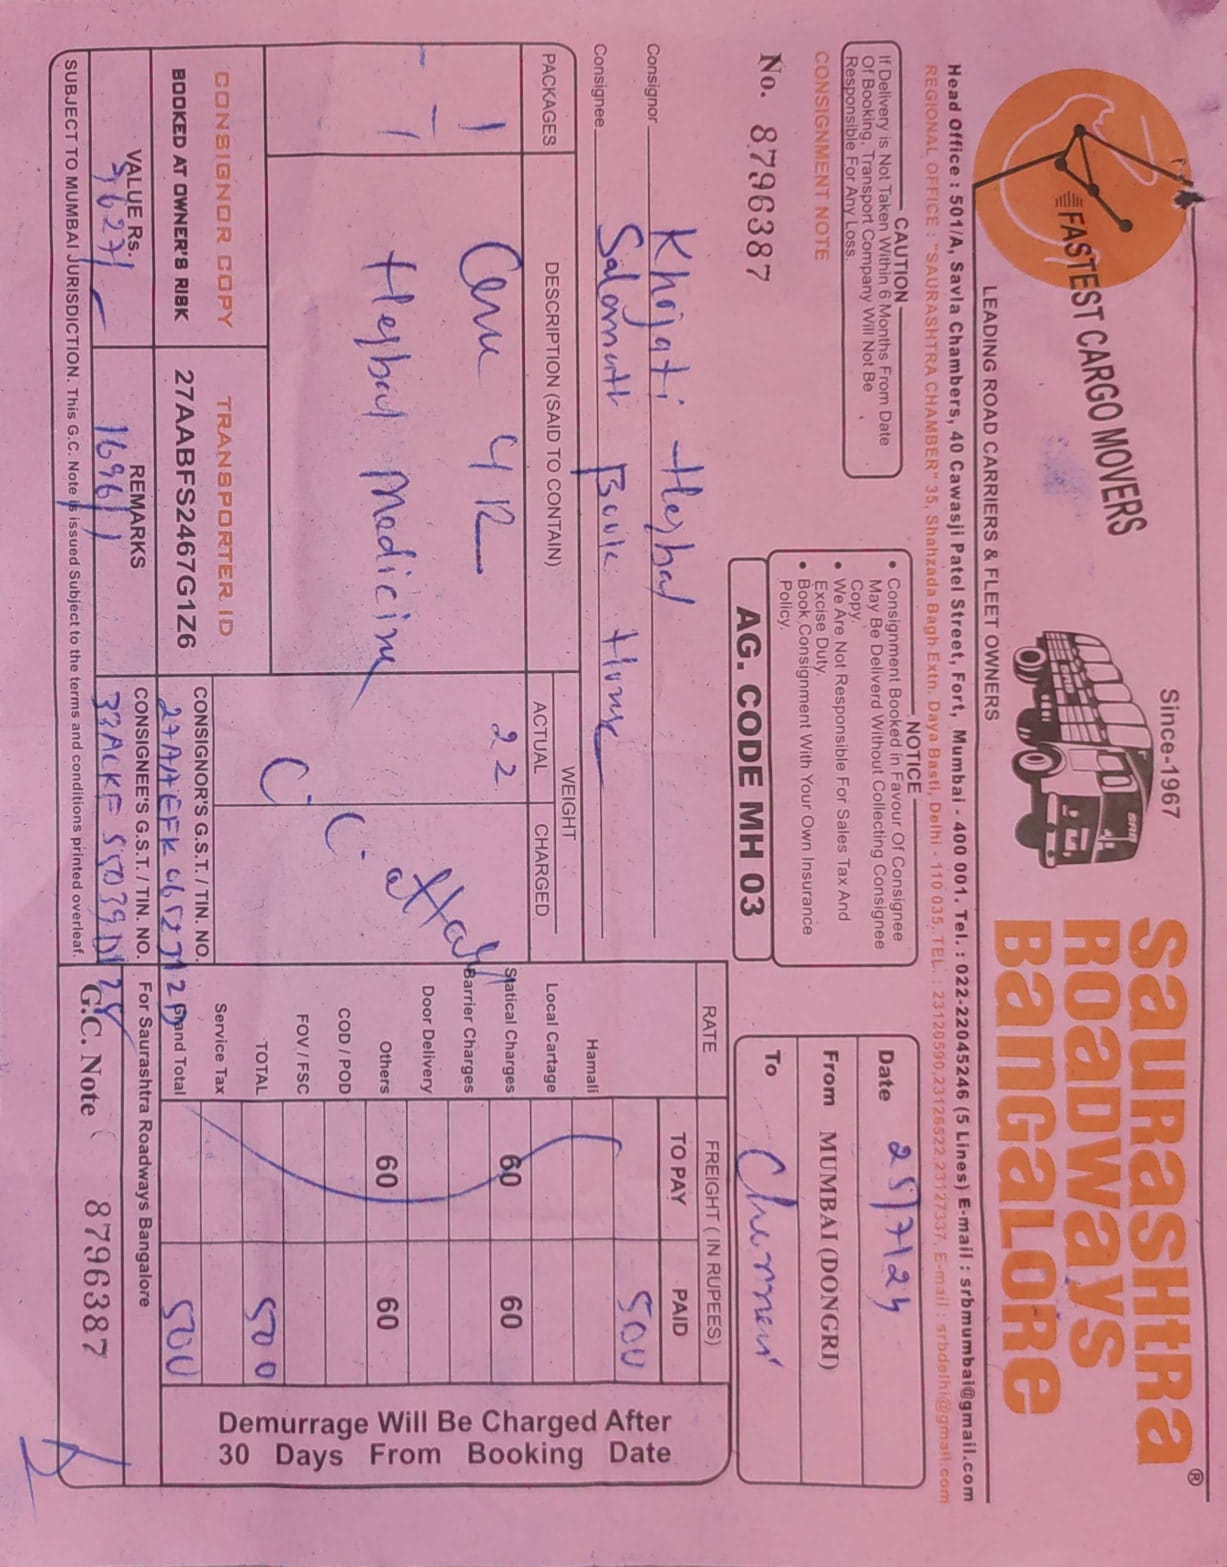 FASTEST CARGO MOVERS
Since-1967
SRB
saURasHtRa
ROaDways
BaNGaLORe
®
LEADING ROAD CARRIERS & FLEET OWNERS
Head Office : 501/A, Savla Chambers, 40 Cawasji Patel Street, Fort, Mumbai - 400 001. Tel. : 022-22045246 (5 Lines) E-mail : srbmumbai@gmail.com
REGIONAL OFFICE : "SAURASHTRA CHAMBER" 35, Shahzada Bagh Extn. Daya Basti, Delhi - 110 035. TEL. : 23120590,23126522,23127337, E-mail : srbdelhi@gmail.com
CAUTION
If Delivery is Not Taken Within 6 Months From Date
Of Booking, Transport Company Will Not Be
Responsible For Any Loss.
NOTICE
• Consignment Booked in Favour Of Consignee
May Be Deliverd Without Collecting Consignee
Copy.
• We Are Not Responsible For Sales Tax And
Excise Duty.
• Book Consignment With Your Own Insurance
Policy.
Date 25/7/24
From MUMBAI (DONGRI)
To Chennai
CONSIGNMENT NOTE
No. 8796387
AG. CODE MH 03
Consignor Khojati Herbal
Consignee Salamatt Book House
PACKAGES DESCRIPTION (SAID TO CONTAIN) WEIGHT
ACTUAL CHARGED
RATE FREIGHT ( IN RUPEES)
TO PAY PAID
500
Hamali
Local Cartage
Statical Charges 60 60
Barrier Charges
Door Delivery
Others 60 60
COD / POD
FOV / FSC
TOTAL 500
Service Tax
Grand Total 500
1 412 22
Herbal Medicine
C. C. attach
CONSIGNOR COPY TRANSPORTER ID
BOOKED AT OWNER'S RISK 27AABFS2467G1Z6
CONSIGNOR'S G.S.T. / TIN. NO.
VALUE Rs. REMARKS
16961
CONSIGNEE'S G.S.T. / TIN. NO.
For Saurashtra Roadways Bangalore
G.C. Note 8796387
Demurrage Will Be Charged After
30 Days From Booking Date
SUBJECT TO MUMBAI JURISDICTION. This G.C. Note is issued Subject to the terms and conditions printed overleaf.